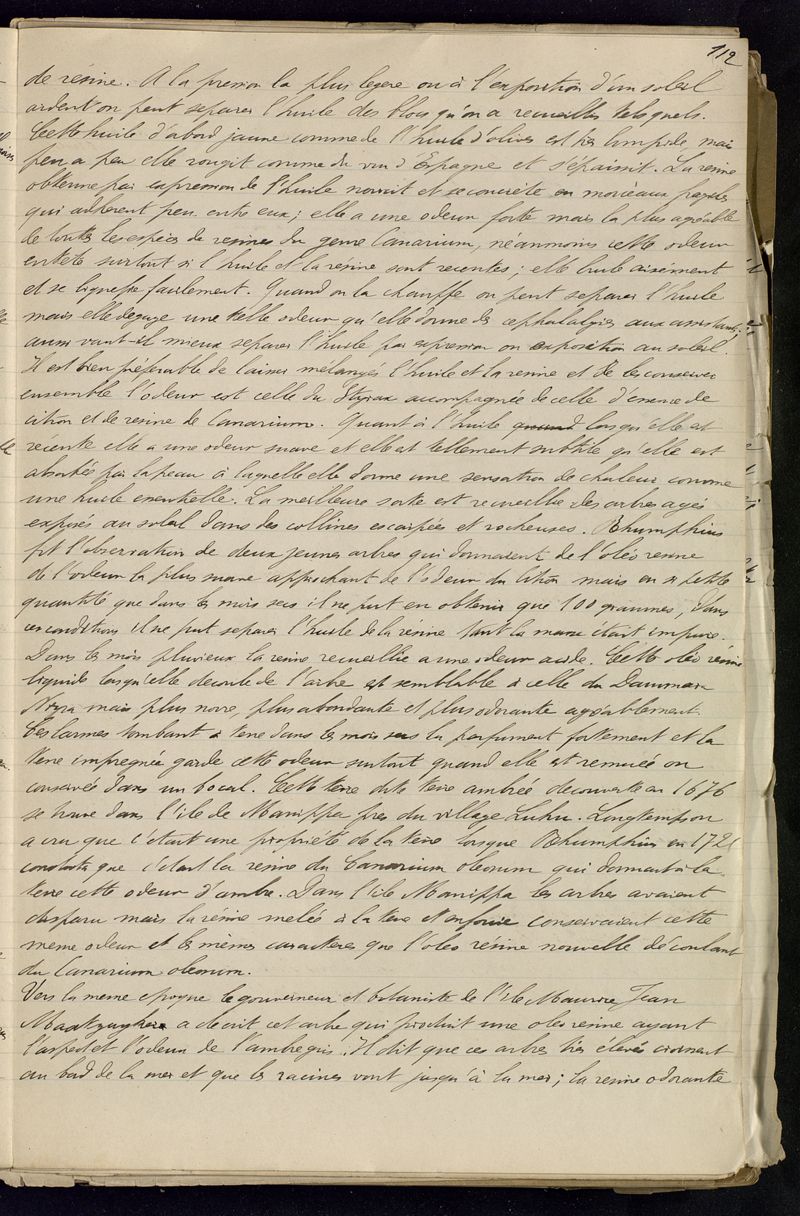 112
de résine. A la pression la plus légère ou à l'exposition d'un soleil
ardent on peut separer l'huile des blocs qu'on a recueillies telsquels.
Cette huile d'abord jaune comme de l'huile d'olives est très limpide, mais
peu a peu elle rougit comme du vin d'Espagne et s'épaissit. La resine
obtenue par expression de l'huile noircit et se concrète en morceaux fragiles
qui adherent peu entre eux; elle a une odeur forte mais la plus agréable
de toutes les espèces de resines du genre Canarium, néanmoins cette odeur
entete surtout si l'huile et la resine sont recentes; elle brule aisément
et se liquefie facilement. Quand on la chauffe on peut separer l'huile
mais elle degage une telle odeur qu'elle donne des cephalalgies aux assistants;
aussi vaut-il mieux separer l'huile par expression ou exposition au soleil.
Il est bien préférable de laisser melangés l'huile et la resine et de les conserver
ensemble l'odeur est celle du Styrax accompagnée de celle d'essence de
citron et de resine de Canarium. Quant à l'huile quand lorsqu'elle est
récente elle a une odeur suave et elle est tellement subtile qu'elle est
absorbée par la peau à laquelle elle donne une sensation de chaleur comme
une huile essentielle. La meilleure sorte est recueillie des arbres agés
exposés au soleil dans des collines escarpées et rocheuses. Rhumphius
fit l'observation de deux jeunes arbres qui donnaient de l'oléo resine
de l'odeur la plus suave approchant de l'odeur du citron mais en si petite
quantité que dans les mois secs il ne put en obtenir que 100 grammes, dans
ces conditions il ne put separer l'huile de la résine tant la masse était impure.
Dans les mois pluvieux la resine recueillie a une odeur acide. Cette oléo résine
liquide lorsqu'elle decoule de l'arbre est semblable à celle du Dammar
Nigra mais plus noire, plus abondante et plus odorante agréablement.
Ces larmes tombant à terre dans les mois secs la parfument fortement et la
terre impregnée garde cette odeur surtout quand elle est remuée ou
conservée dans un bocal. Cette terre dite terre ambrée decouverte en 1676
se trouve dans l'ile de Manippa près du village Luhu. Longtemps on
a cru que c'était une propriété de la terre lorsque Rhumphius en 1721
constata que c'était la resine du Canarium oleosum qui donnait à la
terre cette odeur d'ambre. Dans l'ile Manippa les arbres avaient
disparu mais la resine melée à la terre et enfouie conservaient cette
meme odeur et les mêmes caracteres que l'oleo resine nouvelle découlant
du Canarium oleosum.
Vers la meme epoque le gouverneur et botaniste de l'ile Maurice Jean
a decrit cet arbre qui produit une oleo resine ayant
l'aspect et l'odeur de l'ambregris. Il dit que ces arbres très élevés croissent
au bord de la mer et que les racines vont jusqu'à la mer; la resine odorante